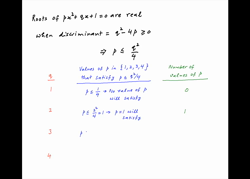 Roots of px²+qx+1=0 are real
when discriminant = q²-4p ≥ 0
⇒ p ≤ q²/4
q Values of p in {1,2,3,4} that satisfy p ≤ q²/4 Number of values of p
1 p ≤ 1/4 → No value of p will satisfy 0
2 p ≤ q²/4 = 1 → p=1 will satisfy 1
3 p
4